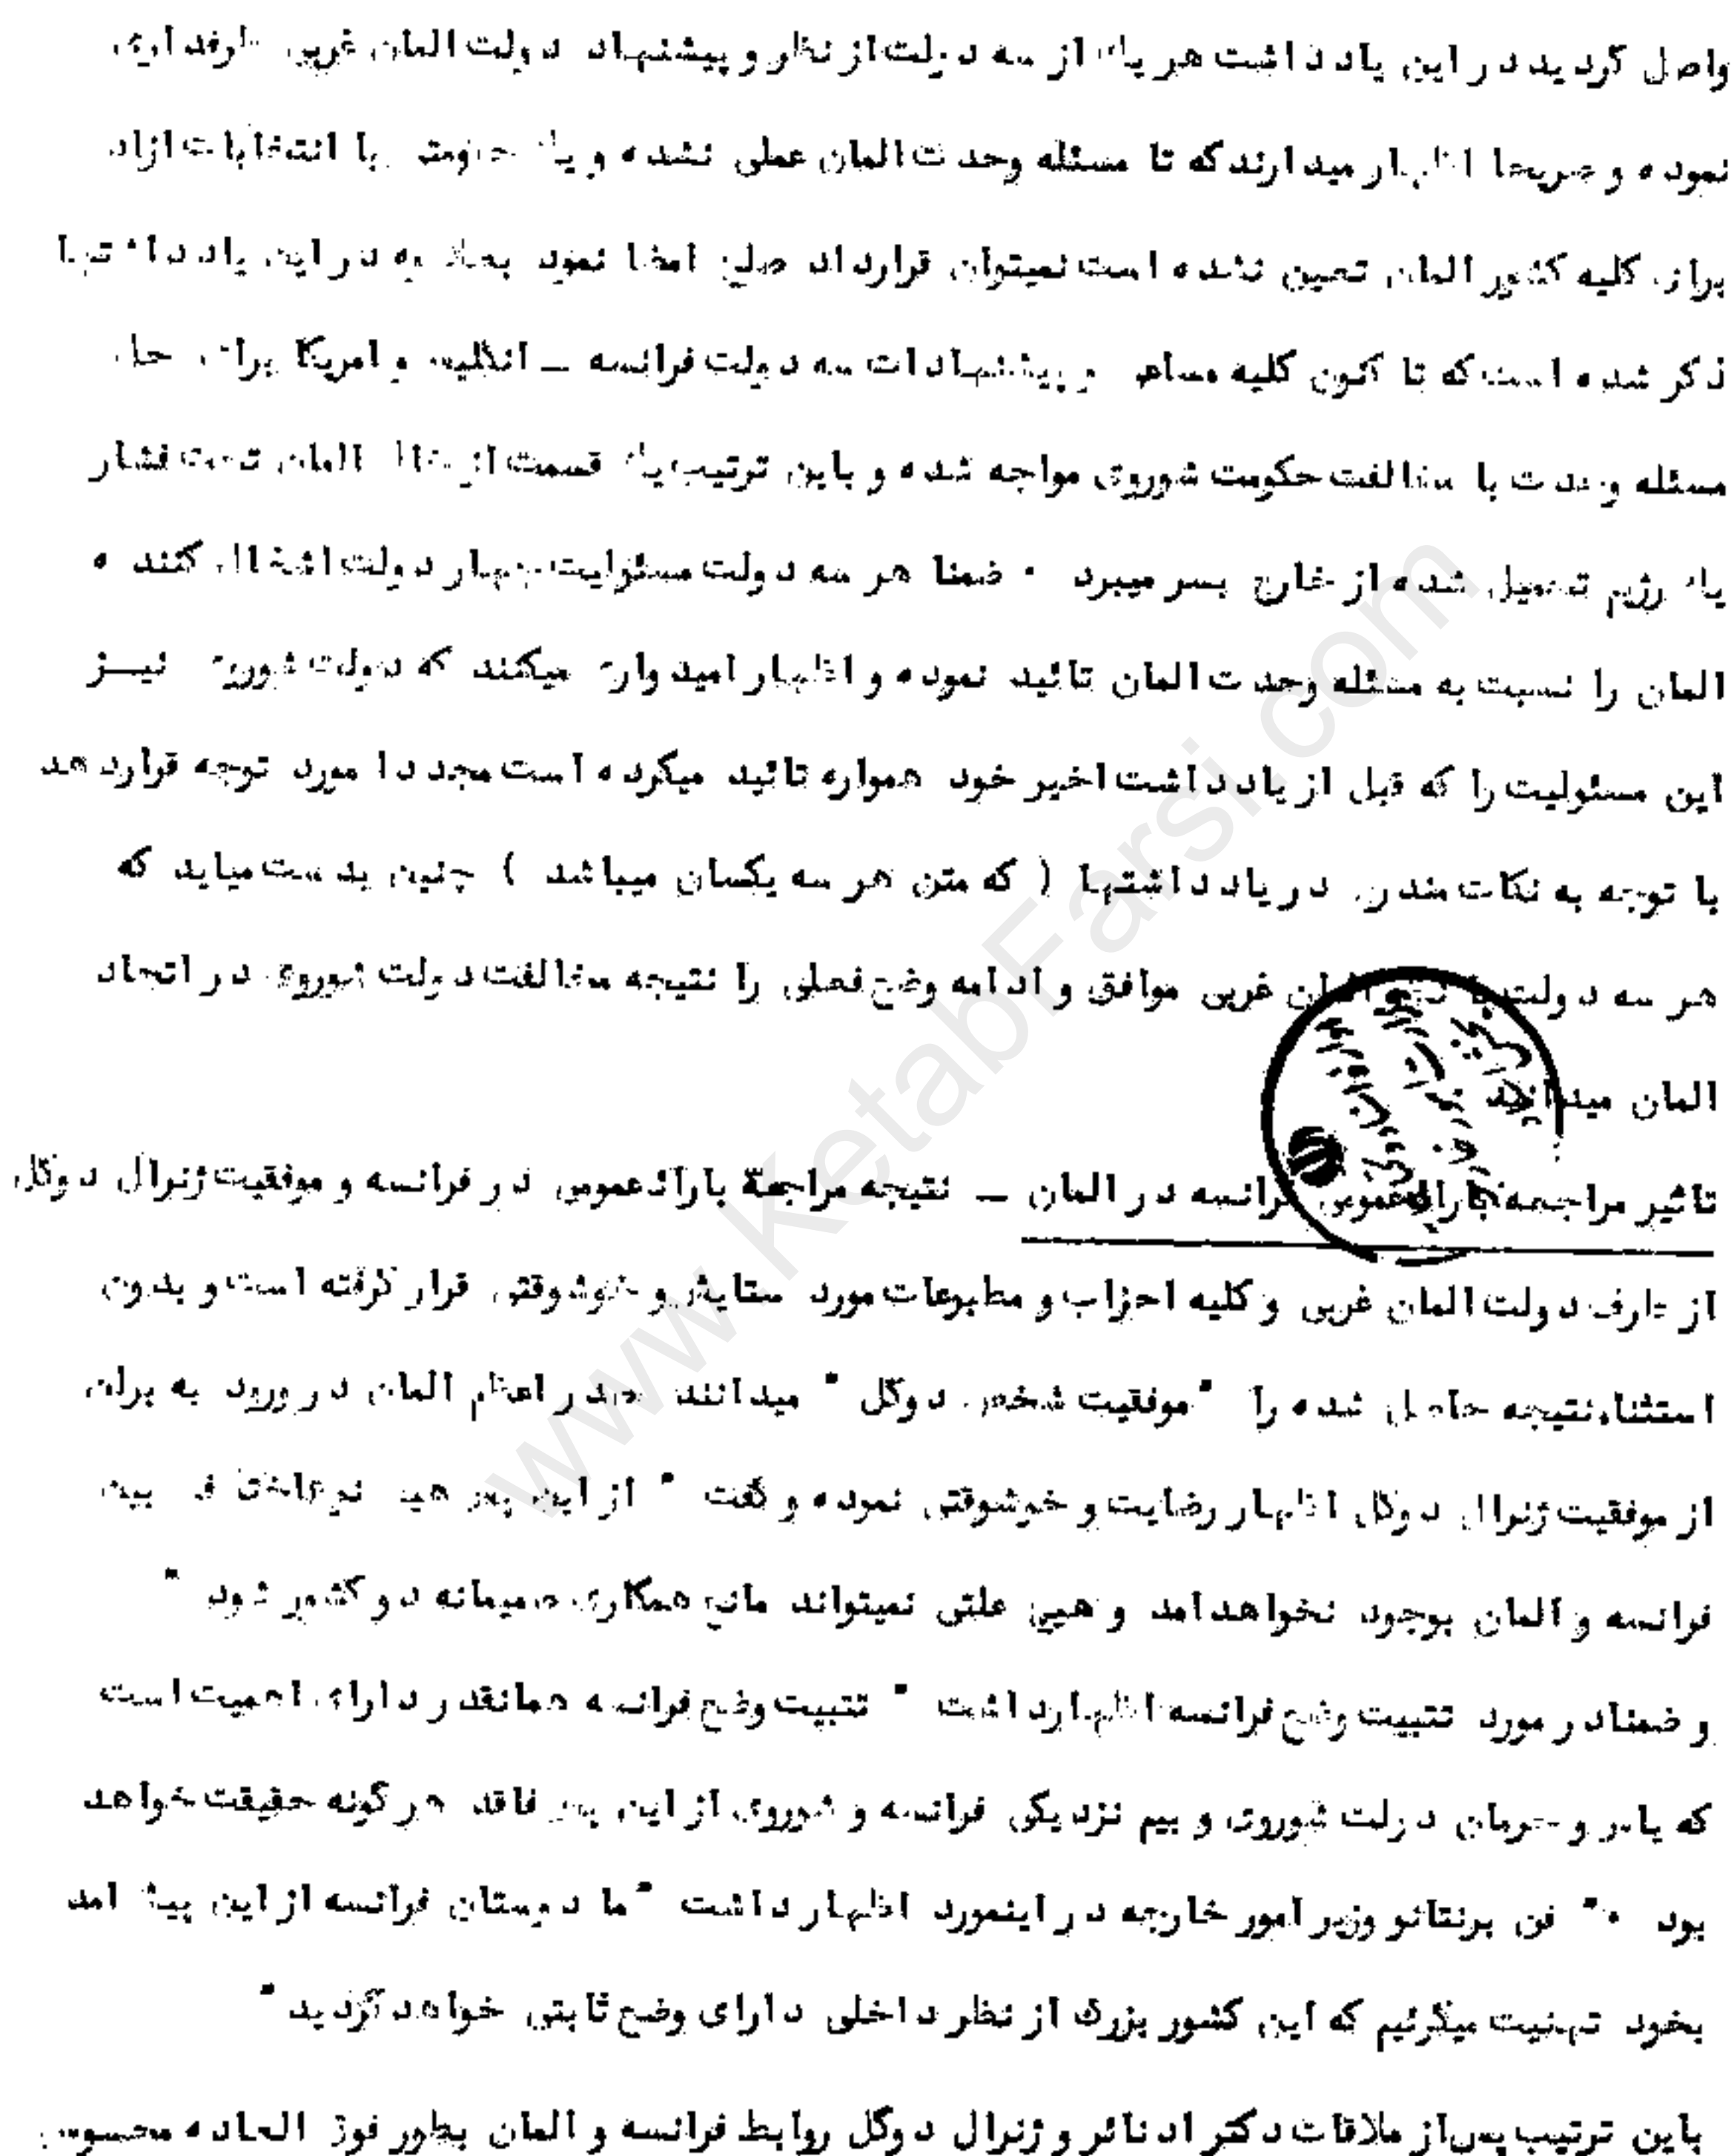 واصل گردید در این یادداشت هر یک از سه دولت از نظر و پیشنهاد دولت المان غربی طرفداری
نموده و صریحا اظهار میدارند که تا مسئله وحدت المان عملی نشده و یک حکومت با انتخابات ازاد
برای کلیه کشور المان تعیین نشده است نمیتوان قرارداد صلح امضا نمود بعلاوه در این یادداشتها
ذکر شده است که تا کنون کلیه مساعی و پیشنهادات سه دولت فرانسه ــ انگلیس و امریکا برای حل
مسئله وحدت با مخالفت حکومت شوروی مواجه شده و باین ترتیب یک قسمت از خاک المان تحت فشار
یک رژیم تحمیل شده از خارج بسر میبرد ۰ ضمنا هر سه دولت مسئولیت چهار دولت اشغال کننده
المان را نسبت به مسئله وحدت المان تائید نموده و اظهار امیدواری میکنند که دولت شوروی نیــز
این مسئولیت را که قبل از یادداشت اخیر خود همواره تائید میکرده است مجددا مورد توجه قرار دهد
با توجه به نکات مندرج در یادداشتها ( که متن هر سه یکسان میباشد ) چنین بدست میاید که
هر سه دولت با المان غربی موافق و ادامه وضع فعلی را نتیجه مخالفت دولت شوروی در اتحاد
المان میدانند
تاثیر مراجعه باراء عمومی فرانسه در المان ــ نتیجه مراجعهٔ باراء عمومی در فرانسه و موفقیت ژنرال دوگل
از طرف دولت المان غربی و کلیه احزاب و مطبوعات مورد ستایش و خوشوقتی قرار گرفته است و بدون
استثناء نتیجه حاصل شده را "موفقیت شخصی دوگل" میدانند صدر اعظم المان در ورود به برلن
از موفقیت ژنرال دوگل اظهار رضایت و خوشوقتی نموده و گفت " از این پس هیچ نوع بین
فرانسه و المان بوجود نخواهد امد و هیچ علتی نمیتواند مانع همکاری صمیمانه دو کشور شود "
و ضمنا در مورد تثبیت وضع فرانسه اظهار داشت " تثبیت وضع فرانسه همانقدر دارای اهمیت است
که یاس و حرمان دولت شوروی و بیم نزدیکی فرانسه و شوروی از این پس فاقد هر گونه حقیقت خواهد
بود ۰" فن برنتانو وزیر امور خارجه در اینمورد اظهار داشت "ما دوستان فرانسه از این پیش امد
بخود تهنیت میگوئیم که این کشور بزرگ از نظر داخلی دارای وضع ثابتی خواهد گردید"
باین ترتیب پس از ملاقات دکتر ادنائر و ژنرال دوگل روابط فرانسه و المان بطور فوق العاده محسوسی
www.KetabFarsi.com